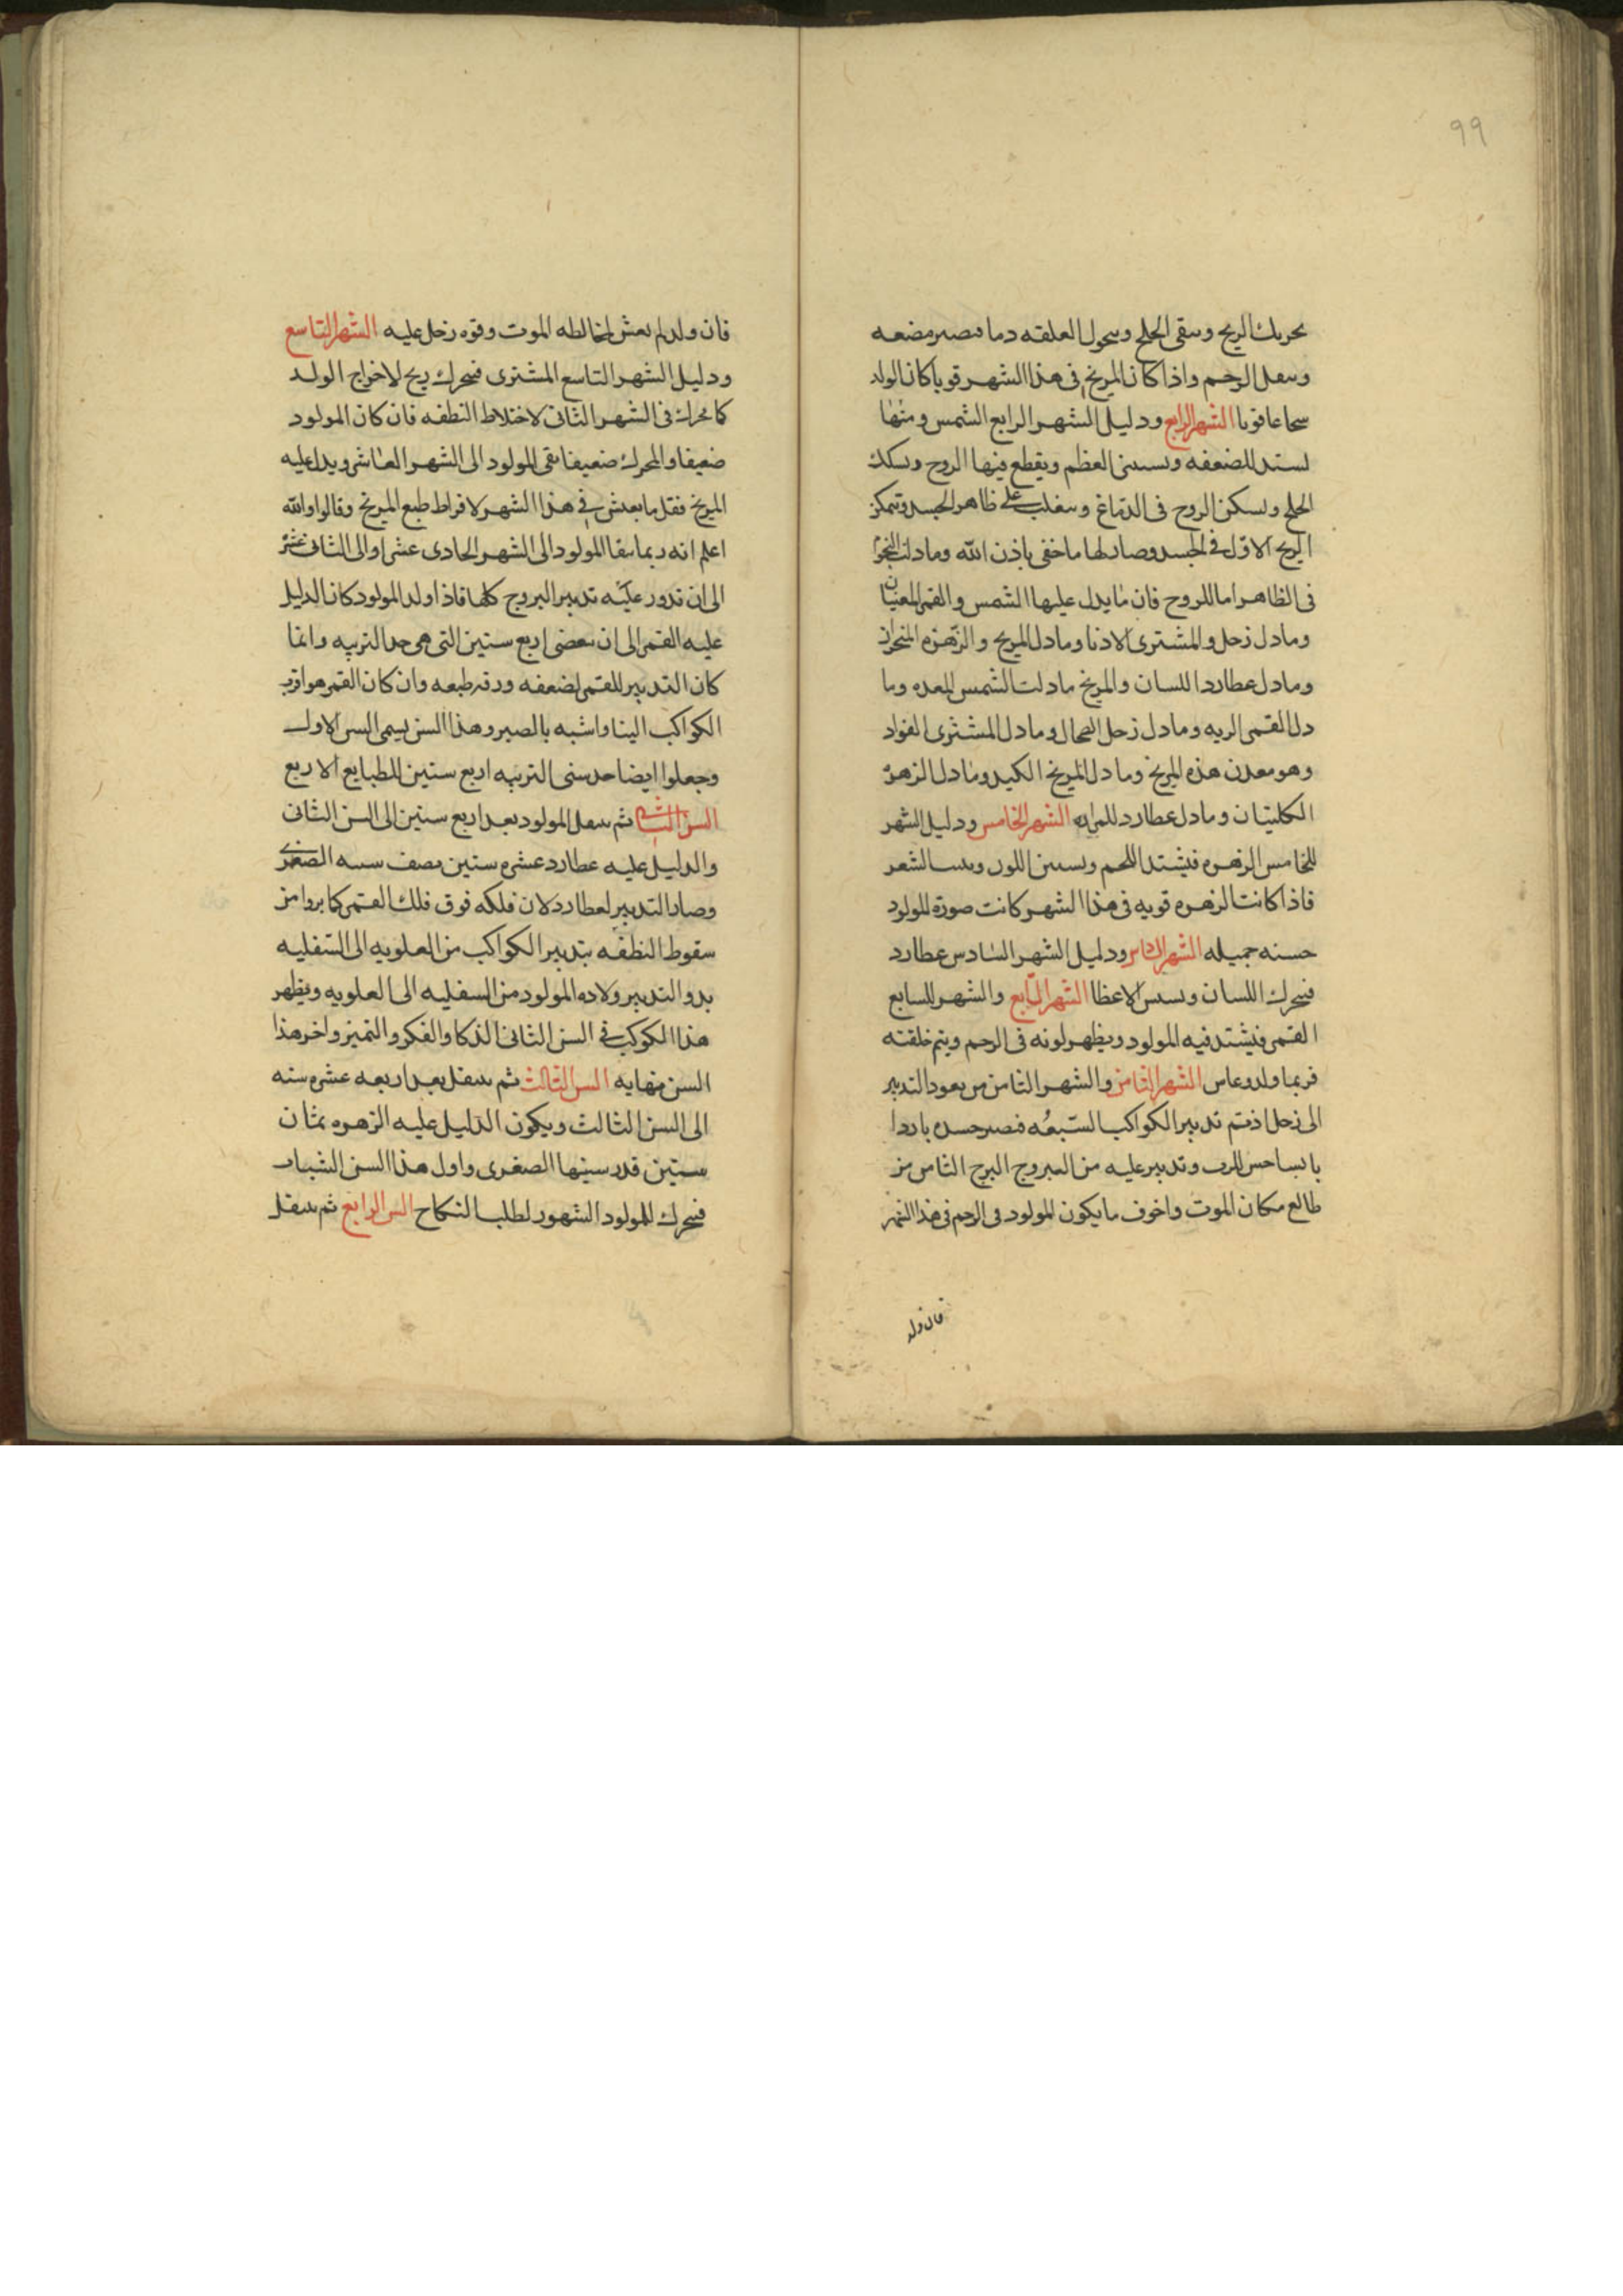 ٩٩
تحريك الريح وسقى الخلج وسحول العلقه دما فىصىر مضعه
وسعل الرحم واذا كان المريخ فى هذا الشهر قويا كان الولد
سحاعا قويا الشهر الرابع ودليل الشهر الرابع الشمس ومنها
لستد المضعفه وىستىىن العظم ويقطع فيها الروح وىسكن
الخلج وىسكن الروح فى الدماغ وىىغلب على ظاهر الجسد وتتمكن
الريح الاول فى الجسد وصار لها ما خفى باذن الله وما دلت النجوم
فى الظاهر اما للروح فان ما يدل عليها الشمس والقمر المعنيان
وما دل زحل والمشترى الاذنا وما دل المريخ والزهره المنخران
وما دل عطارد اللسان والمريخ ما دلت الشمس المعده وما
دل القمر الريه وما دل زحل الصحال وما دل المشترى الفواد
وهو معدن هذه المريخ وما دل المريخ الكبد وما دل الزهره
الكليتان وما دل عطارد للمراره الشهر الخامس ودليل الشهر
الخامس الزهره فيشتد اللحم وىستىىن اللون وىىىت الشعر
فاذا كانت الزهره قويه فى هذا الشهر كانت صورة المولود
حسنه جميله الشهر السادس ودليل الشهر السادس عطارد
فىتحرك اللسان وىستىىن الاعظا الشهر السابع والشهر السابع
القمر فيشتد فيه المولود ويظهر لونه فى الرحم ويتم خلقته
فربما ولد وعاس الشهر الثامن والشهر الثامن من يعود التدبير
الى زحل اذ تم تدبير الكواكب السبعه فىصىر جسده باردا
يابسا وتدبير عليه من البروج البرج الثامن من
طالع مكان الموت واخوف ما يكون المولود فى الرحم فى هذا الشهر
فان ولد
فان ولد لم يعش لمخالطه الموت وقوه زحل عليه الشهر التاسع
ودليل الشهر التاسع المشترى فىتحرك ريح لاخراج الولد
كما تحرك فى الشهر الثانى لاختلاط النطفه فان كان المولود
ضعيفا والمحرك ضعيفا بقى المولود الى الشهر العاشر ويدل عليه
المريخ فقل ما يعيش فى هذا الشهر لافراط طبع المريخ وقالوا والله
اعلم انه ربما بىقا المولود الى الشهر الحادى عشر او الى الثانى عشر
الى ان تدور عليه تدبير البروج كلها فاذا ولد المولود كان الدليل
عليه القمر الى ان ىمضى اربع سنين التى هى حد التربيه وانما
كان التدبير للقمر لضعفه ورقه طبعه وان كان القمر هو اقرب
الكواكب الينا واشبه بالصبر وهذا السن يسمى السن الاول
وجعلوا ايضا حد سنى التربيه اربع سنين للطبايع الاربع
السن الثانى ثم ىىىقل المولود بعد اربع سنين الى السن الثانى
والدليل عليه عطارد عشره سنين نصف سىىه الصغرى
وصار التدبير لعطارد لان فلكه فوق فلك القمر كما بروا من
سقوط النطفه بتدبير الكواكب من العلويه الى السفليه
بدو التدبير ولاده المولود من السفليه الى العلويه ويظهر
هذا الكوكب فى السن الثانى الذكا والفكر والتميز واخر هذا
السن نهايه السن الثالث ثم ىىىقل بعد اربعه عشره سنه
الى السن الثالث ويكون الدليل عليه الزهره بثمان
سنين قدر سنيها الصغرى واول هذا السن الشباب
فىتحرك المولود الشهور لطلب النكاح السن الرابع ثم ىىىقل